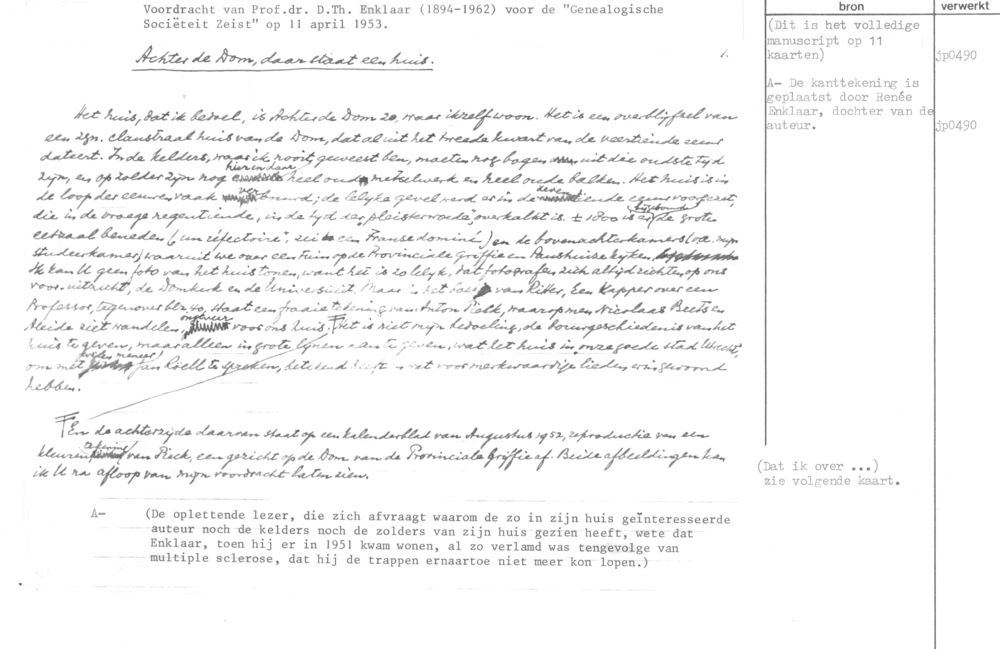 Voordracht van Prof.dr. D.Th. Enklaar (1894-1962) voor de "Genealogische
Sociëteit Zeist" op 11 april 1953.
Achter de Dom, daar staat een huis.
1.
Het huis, dat ik bedoel, is Achter de Dom 20, waar ik zelf woon. Het is een overblijfsel van
een zgn. claustraal huis van de Dom, dat al uit het tweede kwart van de veertiende eeuw
dateert. In de kelders, waar ik nooit geweest ben, moeten nog bogen uit die oudste tyd
zyn, en op zolder zyn nog hier en daar heel oud metselwerk en heel oude balken. Het huis is in
de loop der eeuwen vaak verbouwd; de lelyke gevel werd er in de eeuw voorgezet,
die in de vroege negentiende, in de tyd der "pleisterwoede", overkalkt is. ± 1800 is er de grote
eetzaal beneden ("un réfectoire", zei een Franse dominé) en de bovenachterkamers (o.a. myn
studeerkamer) waaruit we over een tuin op de Provinciale Griffie en Paushuize kyken,
Ik kan U geen foto van het huis tonen, want het is zo lelyk, dat fotografen zich altyd richten op ons
vooruitzicht, de Domkerk en de Universiteit. Maar in het van Ritter, Een Kapper over een
Professor, tegenover blz. 40, staat een fraaie tekening van Anton Pieck, waarop men Nicolaas Beets en
Aleide ziet wandelen, ongeveer voor ons huis. Het is niet myn bedoeling, de bouwgeschiedenis van het
huis te geven, maar alleen in grote lynen aan te geven, wat het huis in onze goede stad Utrecht,
om met wylen meneer Jan Roëll te spreken, betekend heeft en wat voor merkwaardige lieden er in gewoond
hebben.
En de achterzyde daarvan staat op een kalenderblad van Augustus 1952, reproductie van een
kleurentekening van Pieck, een gezicht op de Dom van de Provinciale Griffie af. Beide afbeeldingen kan
ik U na afloop van myn voordracht laten zien.
A- (De oplettende lezer, die zich afvraagt waarom de zo in zijn huis geïnteresseerde
auteur noch de kelders noch de zolders van zijn huis gezien heeft, wete dat
Enklaar, toen hij er in 1951 kwam wonen, al zo verlamd was tengevolge van
multiple sclerose, dat hij de trappen ernaartoe niet meer kon lopen.)
bron
verwerkt
(Dit is het volledige
manuscript op 11
kaarten)
jp0490
A- De kanttekening is
geplaatst door Renée
Enklaar, dochter van de
auteur.
jp0490
(Dat ik over ...)
zie volgende kaart.